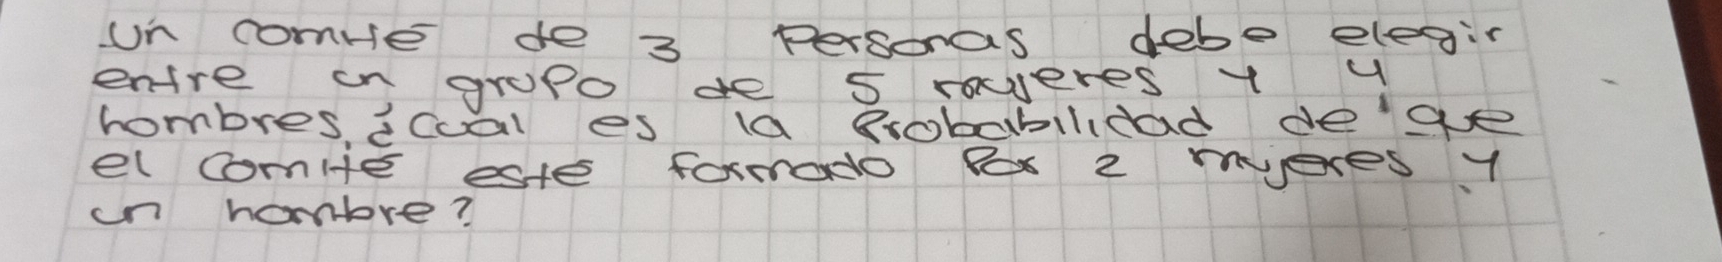 Un comité de 3 Personas debe elegir
entre un grupo de 5 mujeres y 4
hombres ¿Cual es la Probabilidad de que
el comité esté formado Por 2 mujeres y
un hombre?